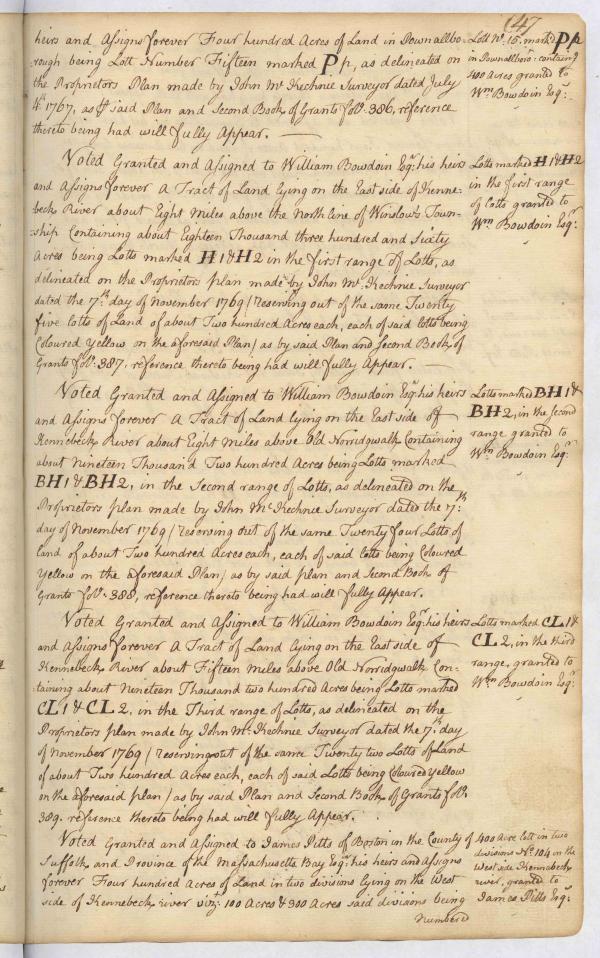 (47
heirs and Assigns forever Four hundred Acres of Land in Pownallbo-
rough being Lott Number Fifteen marked Pp, as delineated on
the Proprietors Plan made by John Mc. Kechnie Surveyor dated July
4th 1767, as ⅌ said Plan and Second Book of Grants folo. 386, reference
thereto being had will fully Appear. —
Lott No. 15. marked Pp
in Pownallboro: containg
400 Acres granted to
Wm Bowdoin Esqr.
Voted Granted and Assigned to William Bowdoin Esqr. his heirs
and Assigns forever A Tract of Land lying on the East side of Kenne-
beck River about Eight Miles above the North line of Winslow's Town-
-ship Containing about Eighteen Thousand three hundred and Sixty
Acres being Lotts marked H1 & H2 in the first range of Lotts, as
delineated on the Proprietors plan made by John Mc. Kechnie Surveyor
dated the 7th. day of November 1769 / reserving out of the same Twenty
five lotts of Land of about Two hundred Acres each, each of said lotts being
Coloured Yellow on the aforesaid Plan / as by said Plan and Second Book of
Grants folo. 387, reference thereto being had will fully Appear. —
Lotts marked H1 & H2
in the first range
of lotts granted to
Wm Bowdoin Esqr.
Voted Granted and Assigned to William Bowdoin Esqr. his heirs
and Assigns forever A Tract of Land lying on the East side of
Kennebeck River about Eight Miles above Old Norridgwalk Containing
about Nineteen Thousand Two hundred Acres being Lotts marked
BH1 & BH2, in the Second range of Lotts, as delineated on the
Proprietors plan made by John Mc. Kechnie Surveyor dated the 7th.
day of November 1769 / reserving out of the same Twenty four Lotts of
land of about Two hundred Acres each, each of said lotts being Coloured
Yellow on the aforesaid Plan / as by said plan and Second Book of
Grants folo. 388, reference thereto being had will fully Appear.
Lotts marked BH1 &
BH2, in the second
range granted to
Wm Bowdoin Esqr.
Voted Granted and Assigned to William Bowdoin Esqr. his heirs
and Assigns forever A Tract of Land lying on the East side of
Kennebeck River about Fifteen Miles above Old Norridgwalk Con-
taining about Nineteen Thousand two hundred Acres being Lotts marked
CL1 & CL2, in the Third range of Lotts, as delineated on the
Proprietors plan made by John Mc. Kechnie Surveyor dated the 7th. day
of November 1769 / reserving out of the same Twenty two Lotts of Land
of about Two hundred Acres each, each of said Lotts being Coloured Yellow
on the aforesaid plan / as by said Plan and Second Book of Grants folo.
389. reference thereto being had will fully Appear.
Lotts marked CL1 &
CL2, in the third
range, granted to
Wm Bowdoin Esqr.
Voted Granted and Assigned to James Pitts of Boston in the County of
Suffolk and Province of the Massachusetts Bay Esqr. his heirs and Assigns
forever Four hundred Acres of Land in two divisions lying on the West
side of Kennebeck river vizt: 100 Acres & 300 Acres said divisions being
Numbered
400 Acre lott in two
divisions No. 104 in the
West side Kennebeck
river, granted to
James Pitts Esqr.